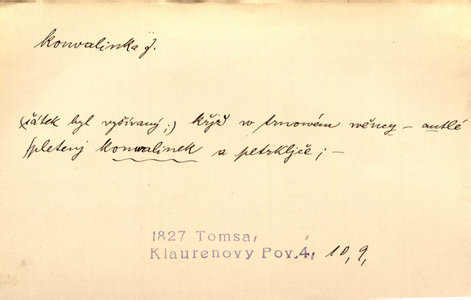 konvalinka f.
(šátek byl vyšívaný;) křjž w trnowém wěncy – autlé
spletenj konwalinek a petrkljče; –
1827 Tomsa,
Klaurenovy Pov.4, 10, 9,